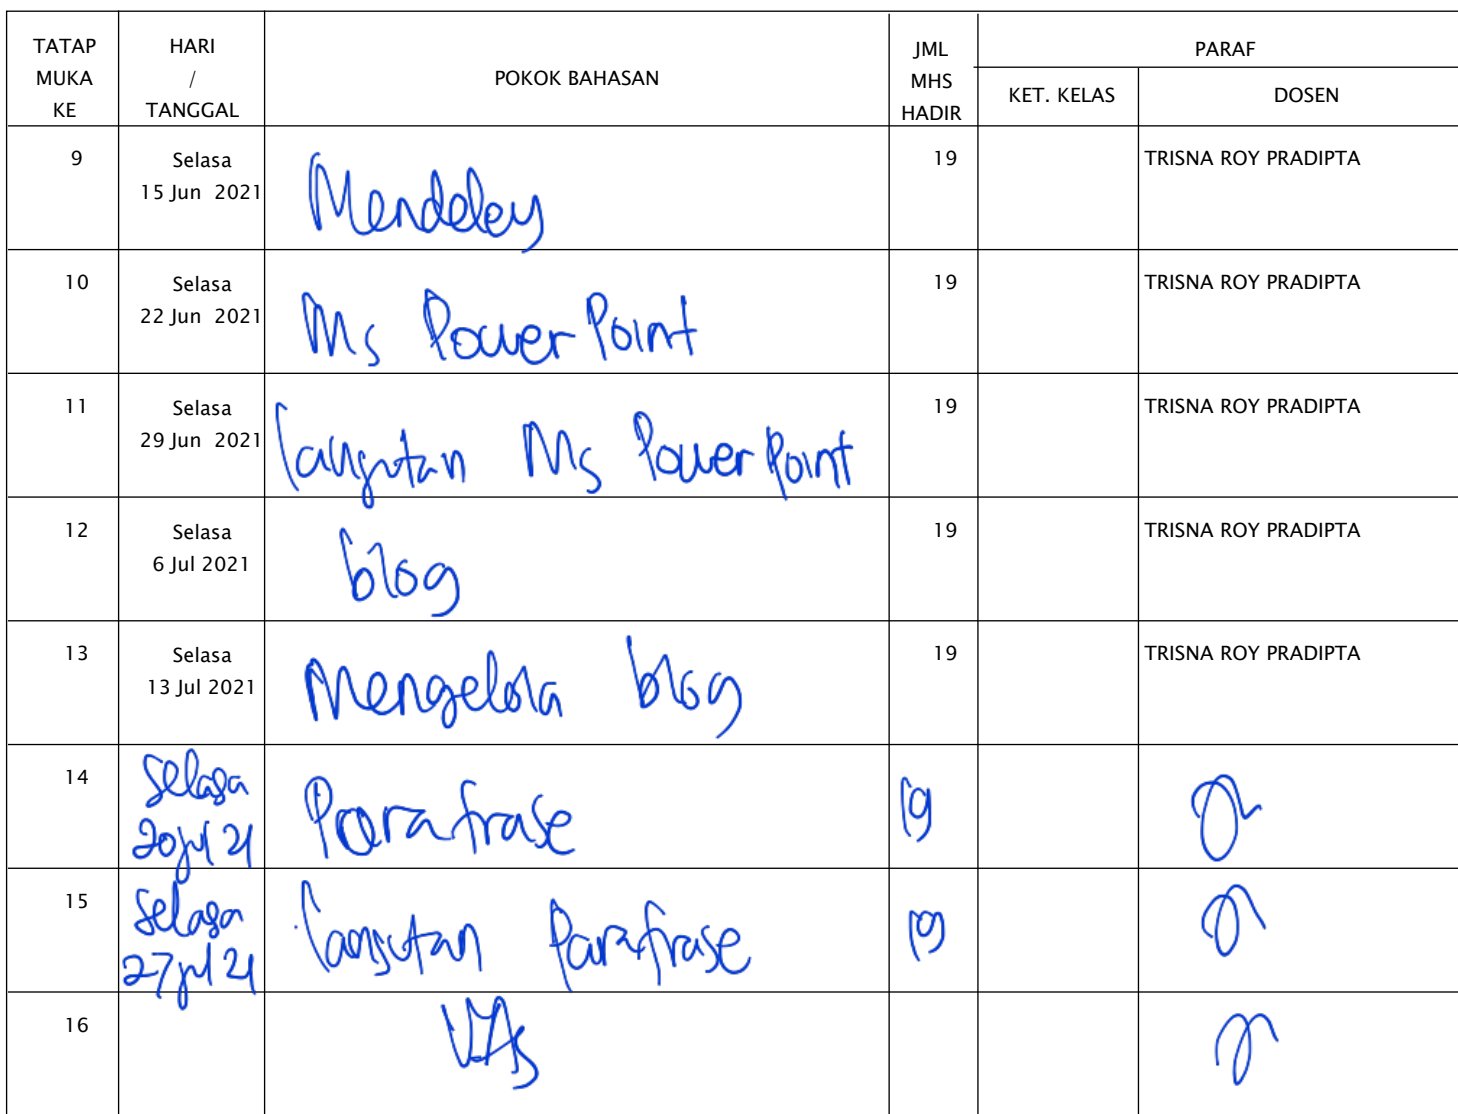 TATAP MUKA KE HARI / TANGGAL POKOK BAHASAN JML MHS HADIR PARAF
KET. KELAS DOSEN
9 Selasa 15 Jun 2021 Mendeley 19 TRISNA ROY PRADIPTA
10 Selasa 22 Jun 2021 Ms PowerPoint 19 TRISNA ROY PRADIPTA
11 Selasa 29 Jun 2021 lanjutan Ms PowerPoint 19 TRISNA ROY PRADIPTA
12 Selasa 6 Jul 2021 blog 19 TRISNA ROY PRADIPTA
13 Selasa 13 Jul 2021 Mengelola blog 19 TRISNA ROY PRADIPTA
14 Selasa 20 jul 21 Parafrase 19
15 Selasa 27 jul 21 lanjutan Parafrase 19
16 UAS